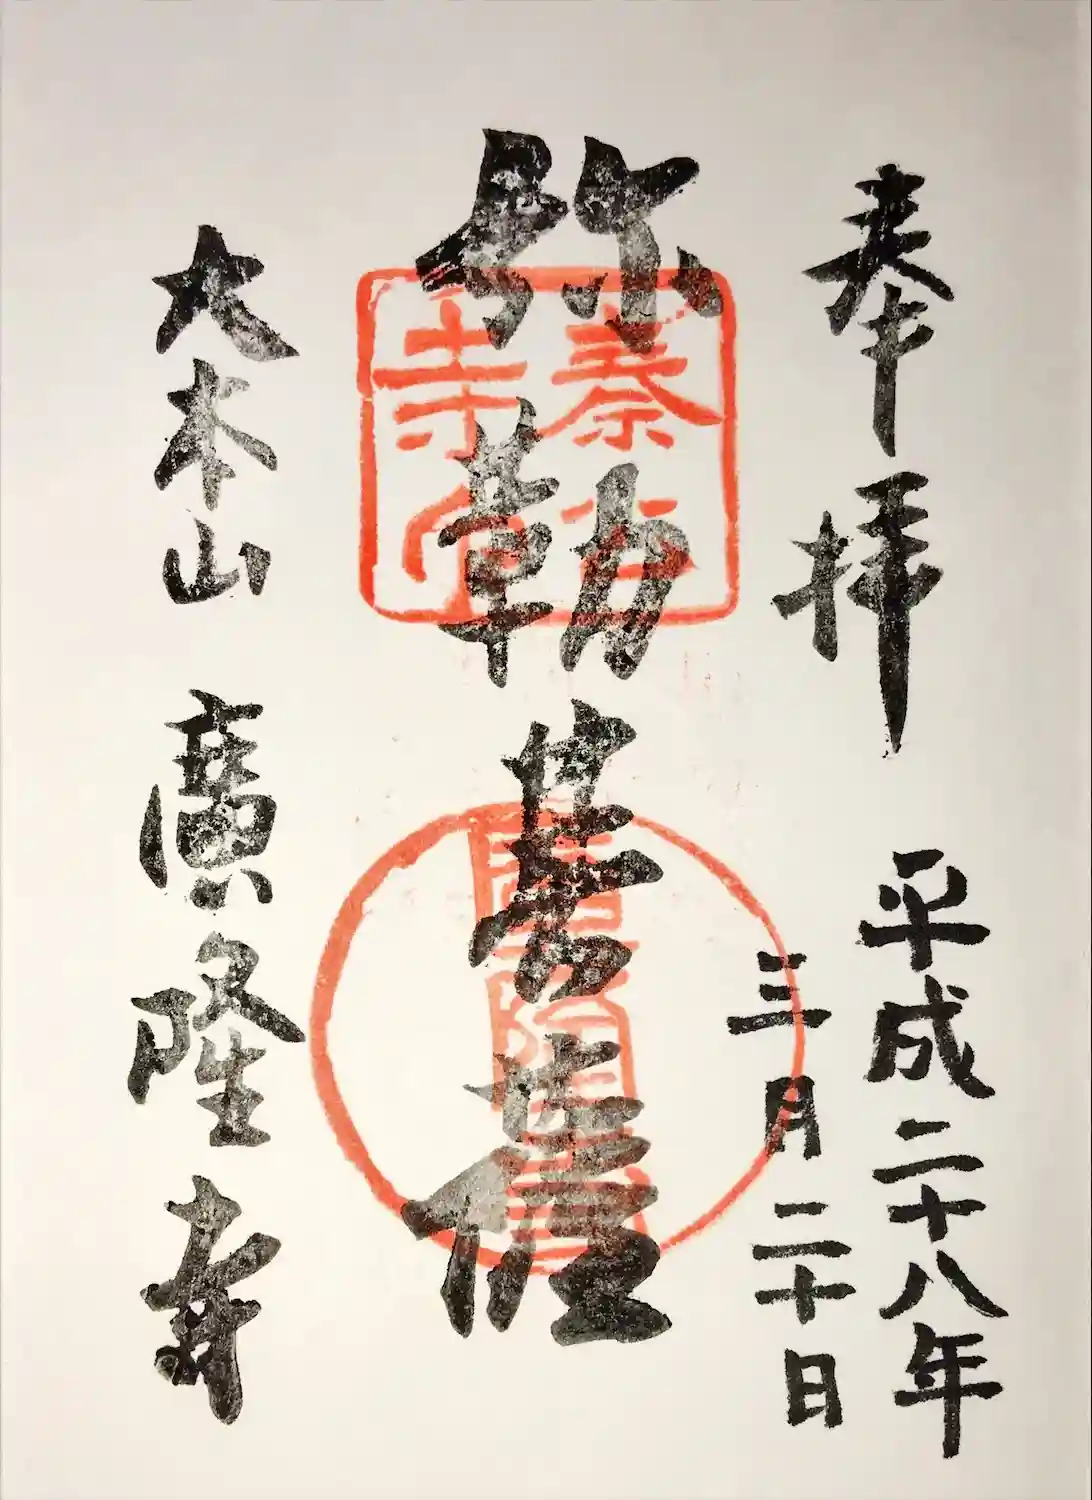 奉拝
平成二十八年
三月二十日
弥勒菩薩
秦公
寺印
大本山 廣隆寺